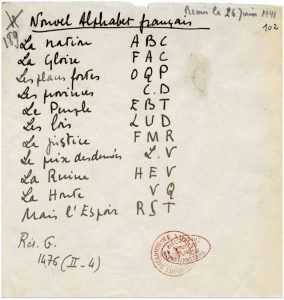 Nouvel Alphabet français
Remis le 26 Juin 1941
102
189
La nation A B C
La Gloire F A C
Les places fortes O Q P
Les provinces C. D
Le Peuple E B T
Les lois L U D
La justice F M R
Le prix des denrées L. V
La Ruine H E V
La Honte V Q
Mais l'Espoir R S T
Rés. G.
1476 (II-4)